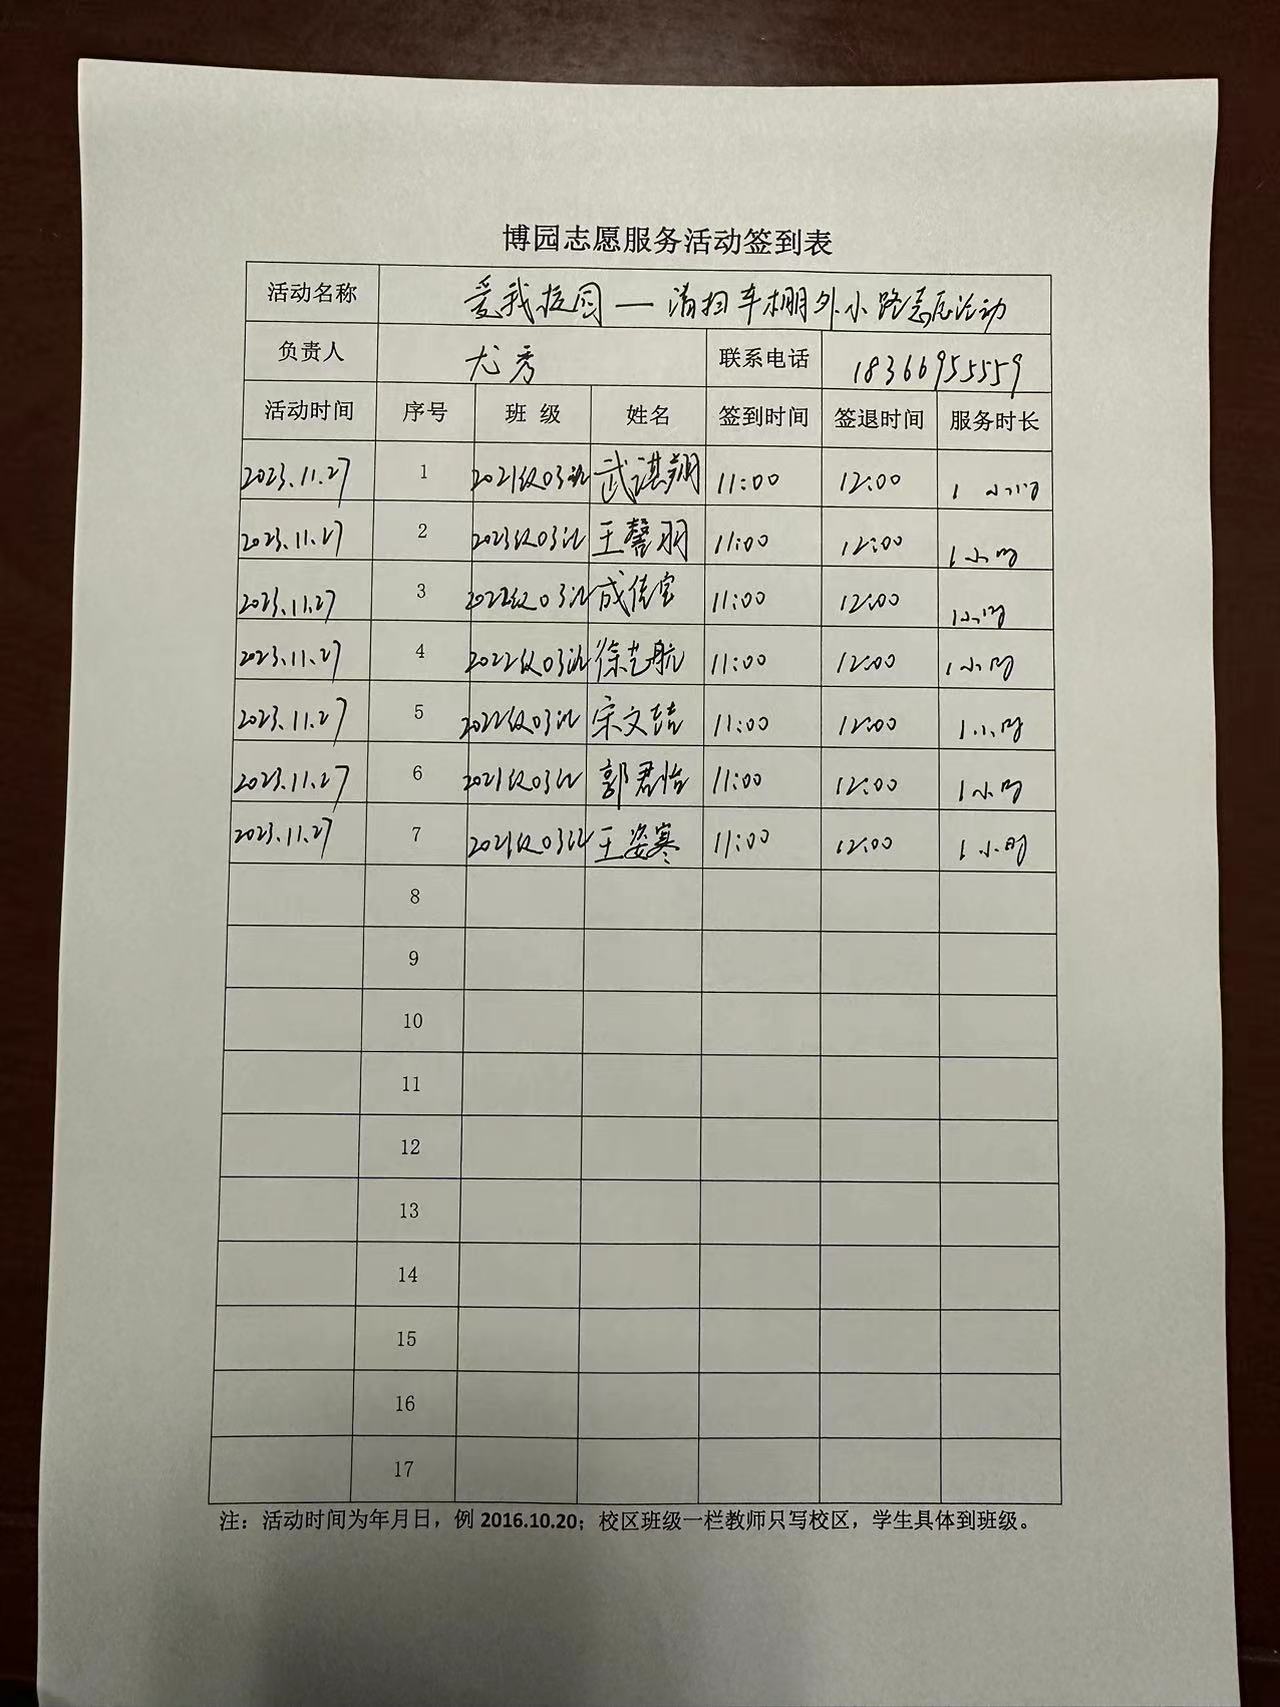 博园志愿服务活动签到表
活动名称 爱我校园—清扫车棚外小路志愿活动
负责人 尤秀 联系电话 18366955559
活动时间 序号 班 级 姓名 签到时间 签退时间 服务时长
2023.11.27 1 2021级03 武谌翔 11:00 12:00 1 小时
2023.11.27 2 2023级03 王馨羽 11:00 12:00 1小时
2023.11.27 3 2022级03 成佳宝 11:00 12:00 1小时
2023.11.27 4 2022级03 徐艺航 11:00 12:00 1小时
2023.11.27 5 2022级03 宋文喆 11:00 12:00 1小时
2023.11.27 6 2021级03 郭君怡 11:00 12:00 1小时
2023.11.27 7 2021级03 王姿寒 11:00 12:00 1小时
8
9
10
11
12
13
14
15
16
17
注：活动时间为年月日，例 2016.10.20；校区班级一栏教师只写校区，学生具体到班级。